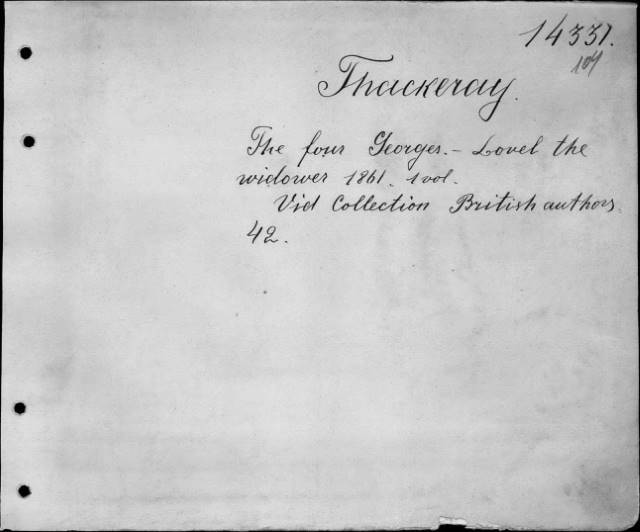 14331.
104
Thackeray.
The four Georges. - Lovel the
widower 1861. 1 vol.
Vid Collection British authors.
42.